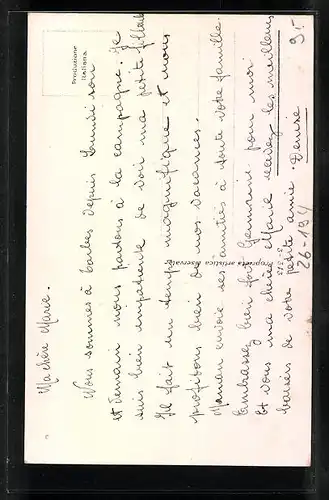 Ma chère Marie.
Nous sommes à Tarbes depuis samedi soir
et demain nous partons à la campagne. Je
suis bien impatiente de voir ma petite filleule
Il fait un temps magnifique et nous
profitons bien de nos vacances.
Maman envoie ses amitiés à toute votre famille.
Embrassez bien fort Germaine pour moi
Et vous ma chère Marie recevez les meilleurs
baisers de votre petite amie. Denise
Produzione
Italiana
Proprietà artistica riservata